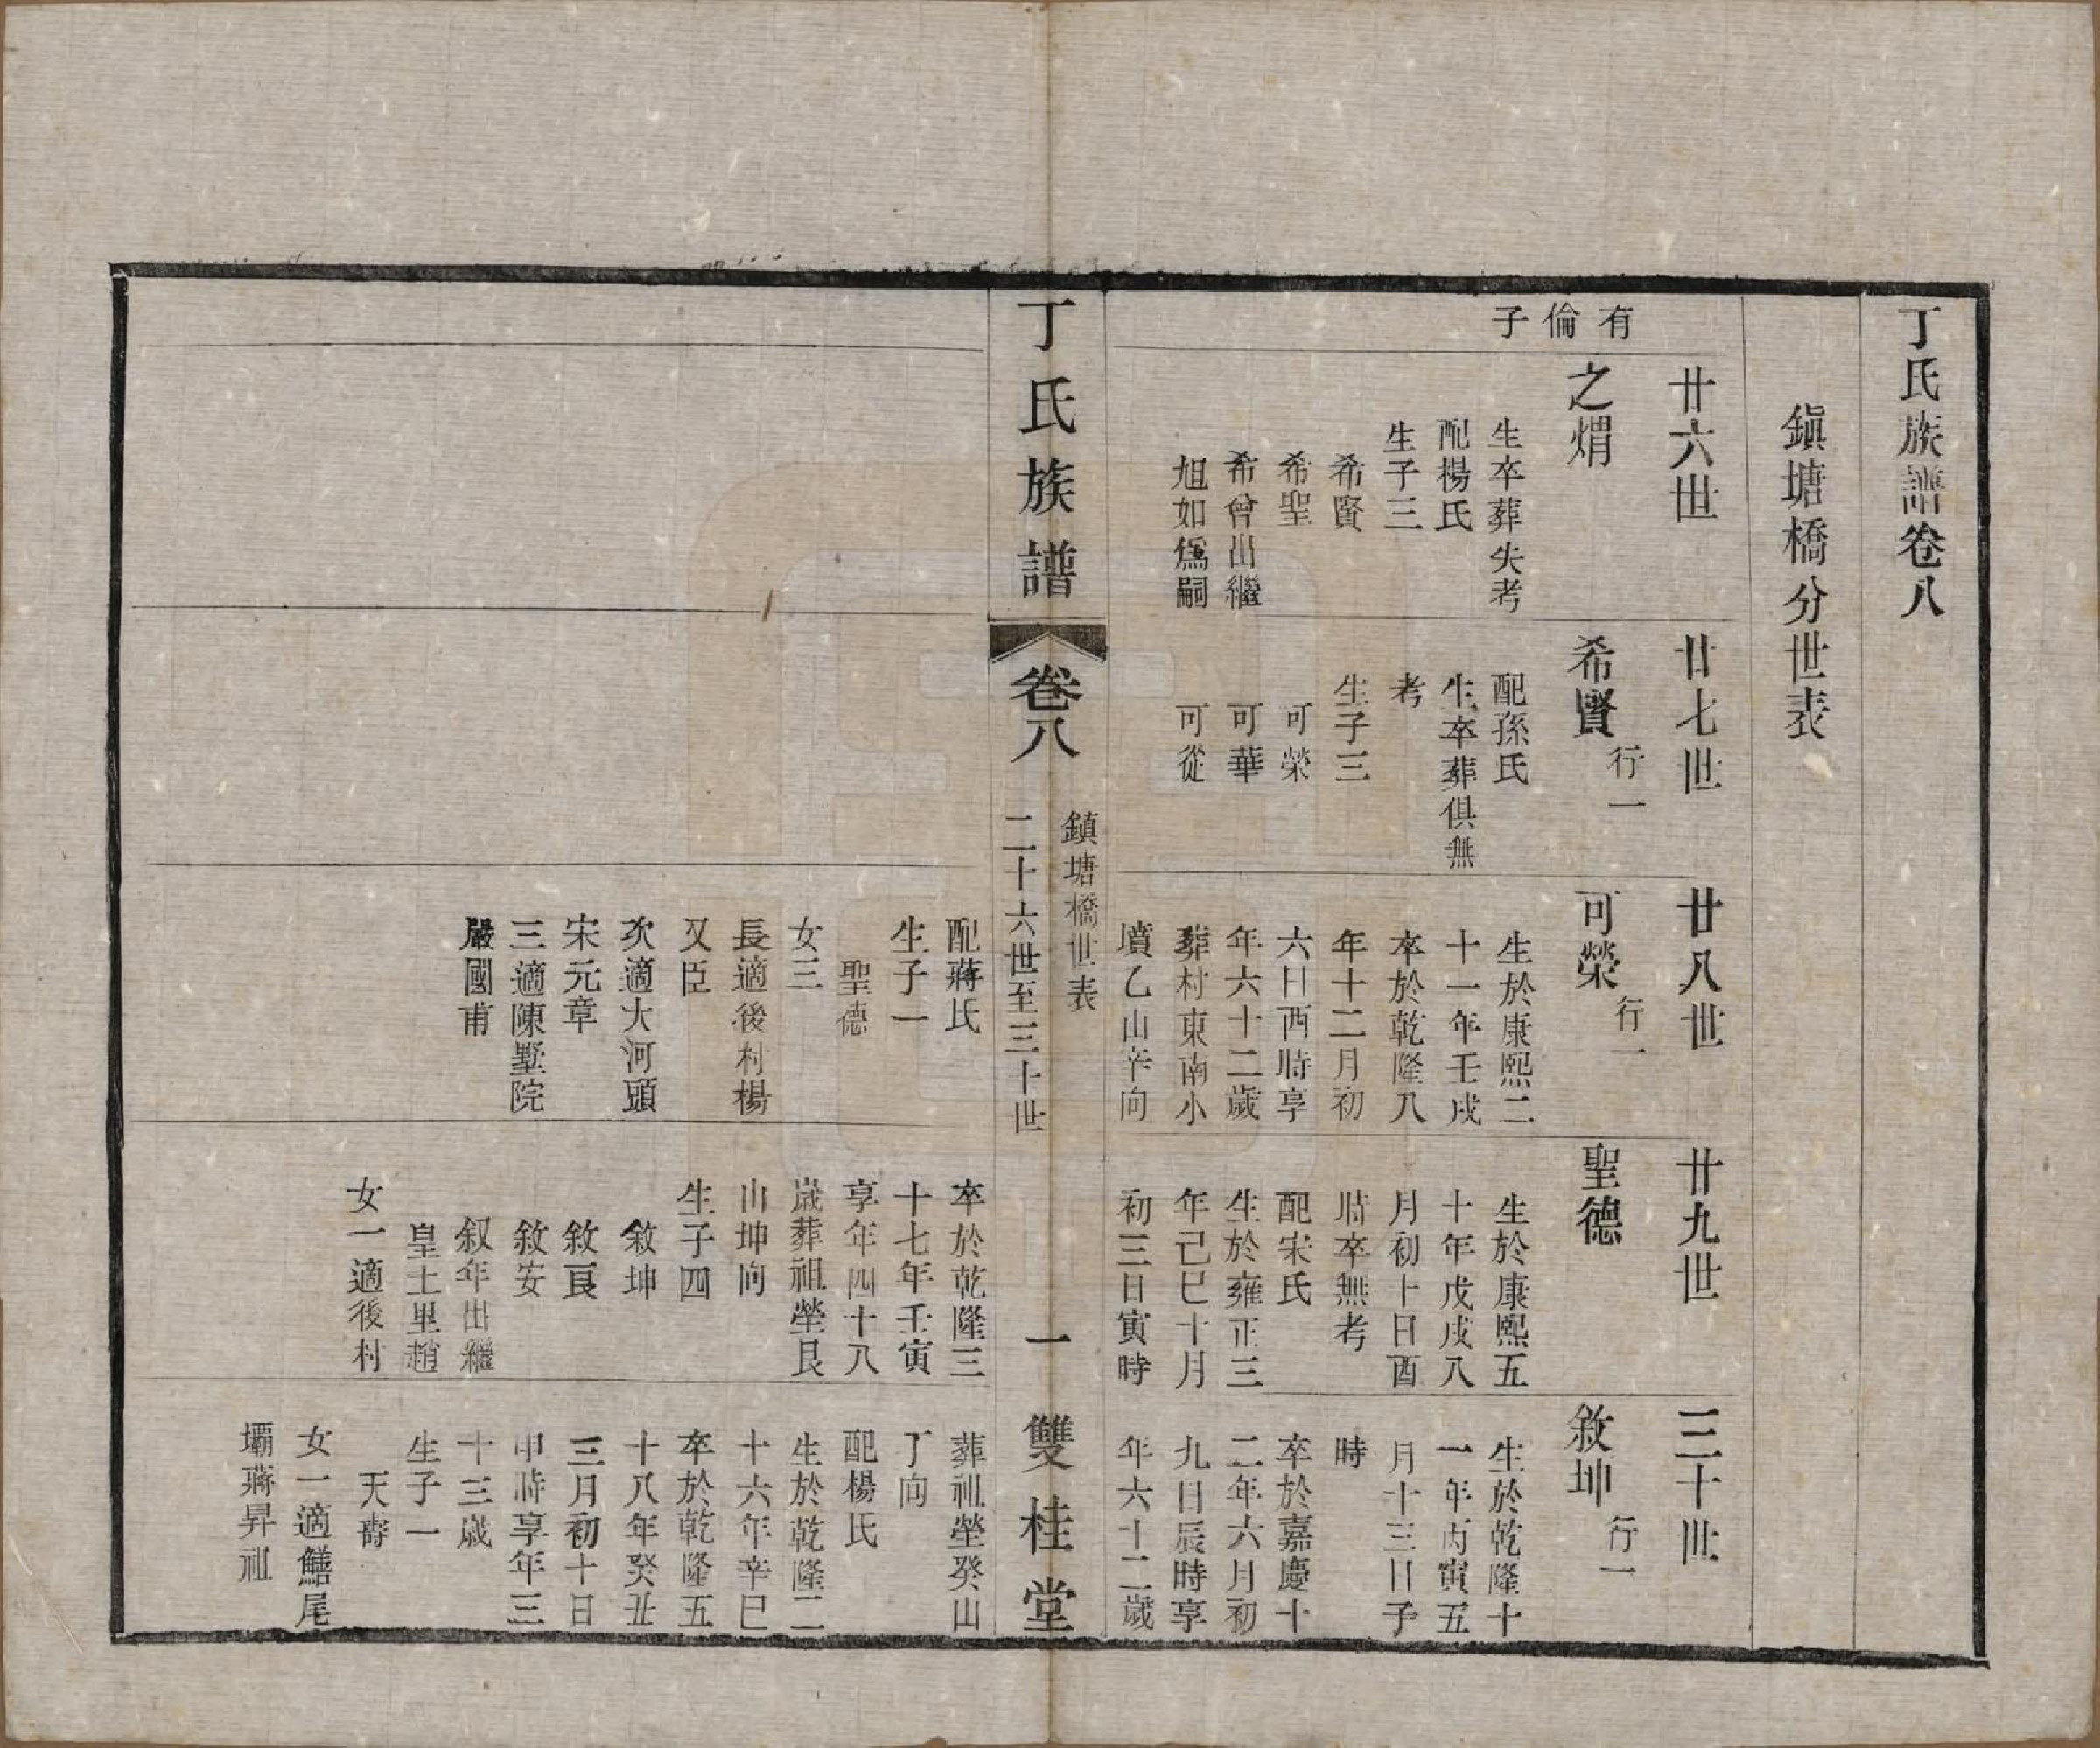 丁氏族譜卷八
鎭塘橋分世表
廿六世
廿七世
廿八世
廿九世
三十世
有倫子
之焨
生卒葬失考
配楊氏
生子三
希賢
希聖
希曾出繼
旭如爲嗣
希賢
行一
配孫氏
生卒葬俱無
考
生子三
可榮
可華
可從
可榮
行一
生於康熙二
十一年壬戌
卒於乾隆八
年十二月初
六日酉時享
年六十二歲
葬村東南小
墳乙山辛向
聖德
生於康熙五
十年戊戌八
月初十日酉
時卒無考
配宋氏
生於雍正三
年己巳十月
初三日寅時
敘坤
行一
生於乾隆十
一年丙寅五
月十三日子
時
卒於嘉慶十
二年六月初
九日辰時享
年六十二歲
丁氏族譜
卷八
鎮塘橋世表
二十六世至三十世
一
雙桂堂
配蔣氏
生子一
聖德
女三
長適後村楊
又臣
次適大河頭
宋元章
三適陳墅院
嚴國甫
卒於乾隆三
十七年壬寅
享年四十八
歲葬祖塋艮
山坤向
生子四
敘坤
敘良
敘安
叙年出繼
皇土里趙
女一適後村
葬祖塋癸山
丁向
配楊氏
生於乾隆二
十六年辛巳
卒於乾隆五
十八年癸丑
三月初十日
申時享年三
十三歲
生子一
天壽
女一適鱔尾
壩蔣昇祖